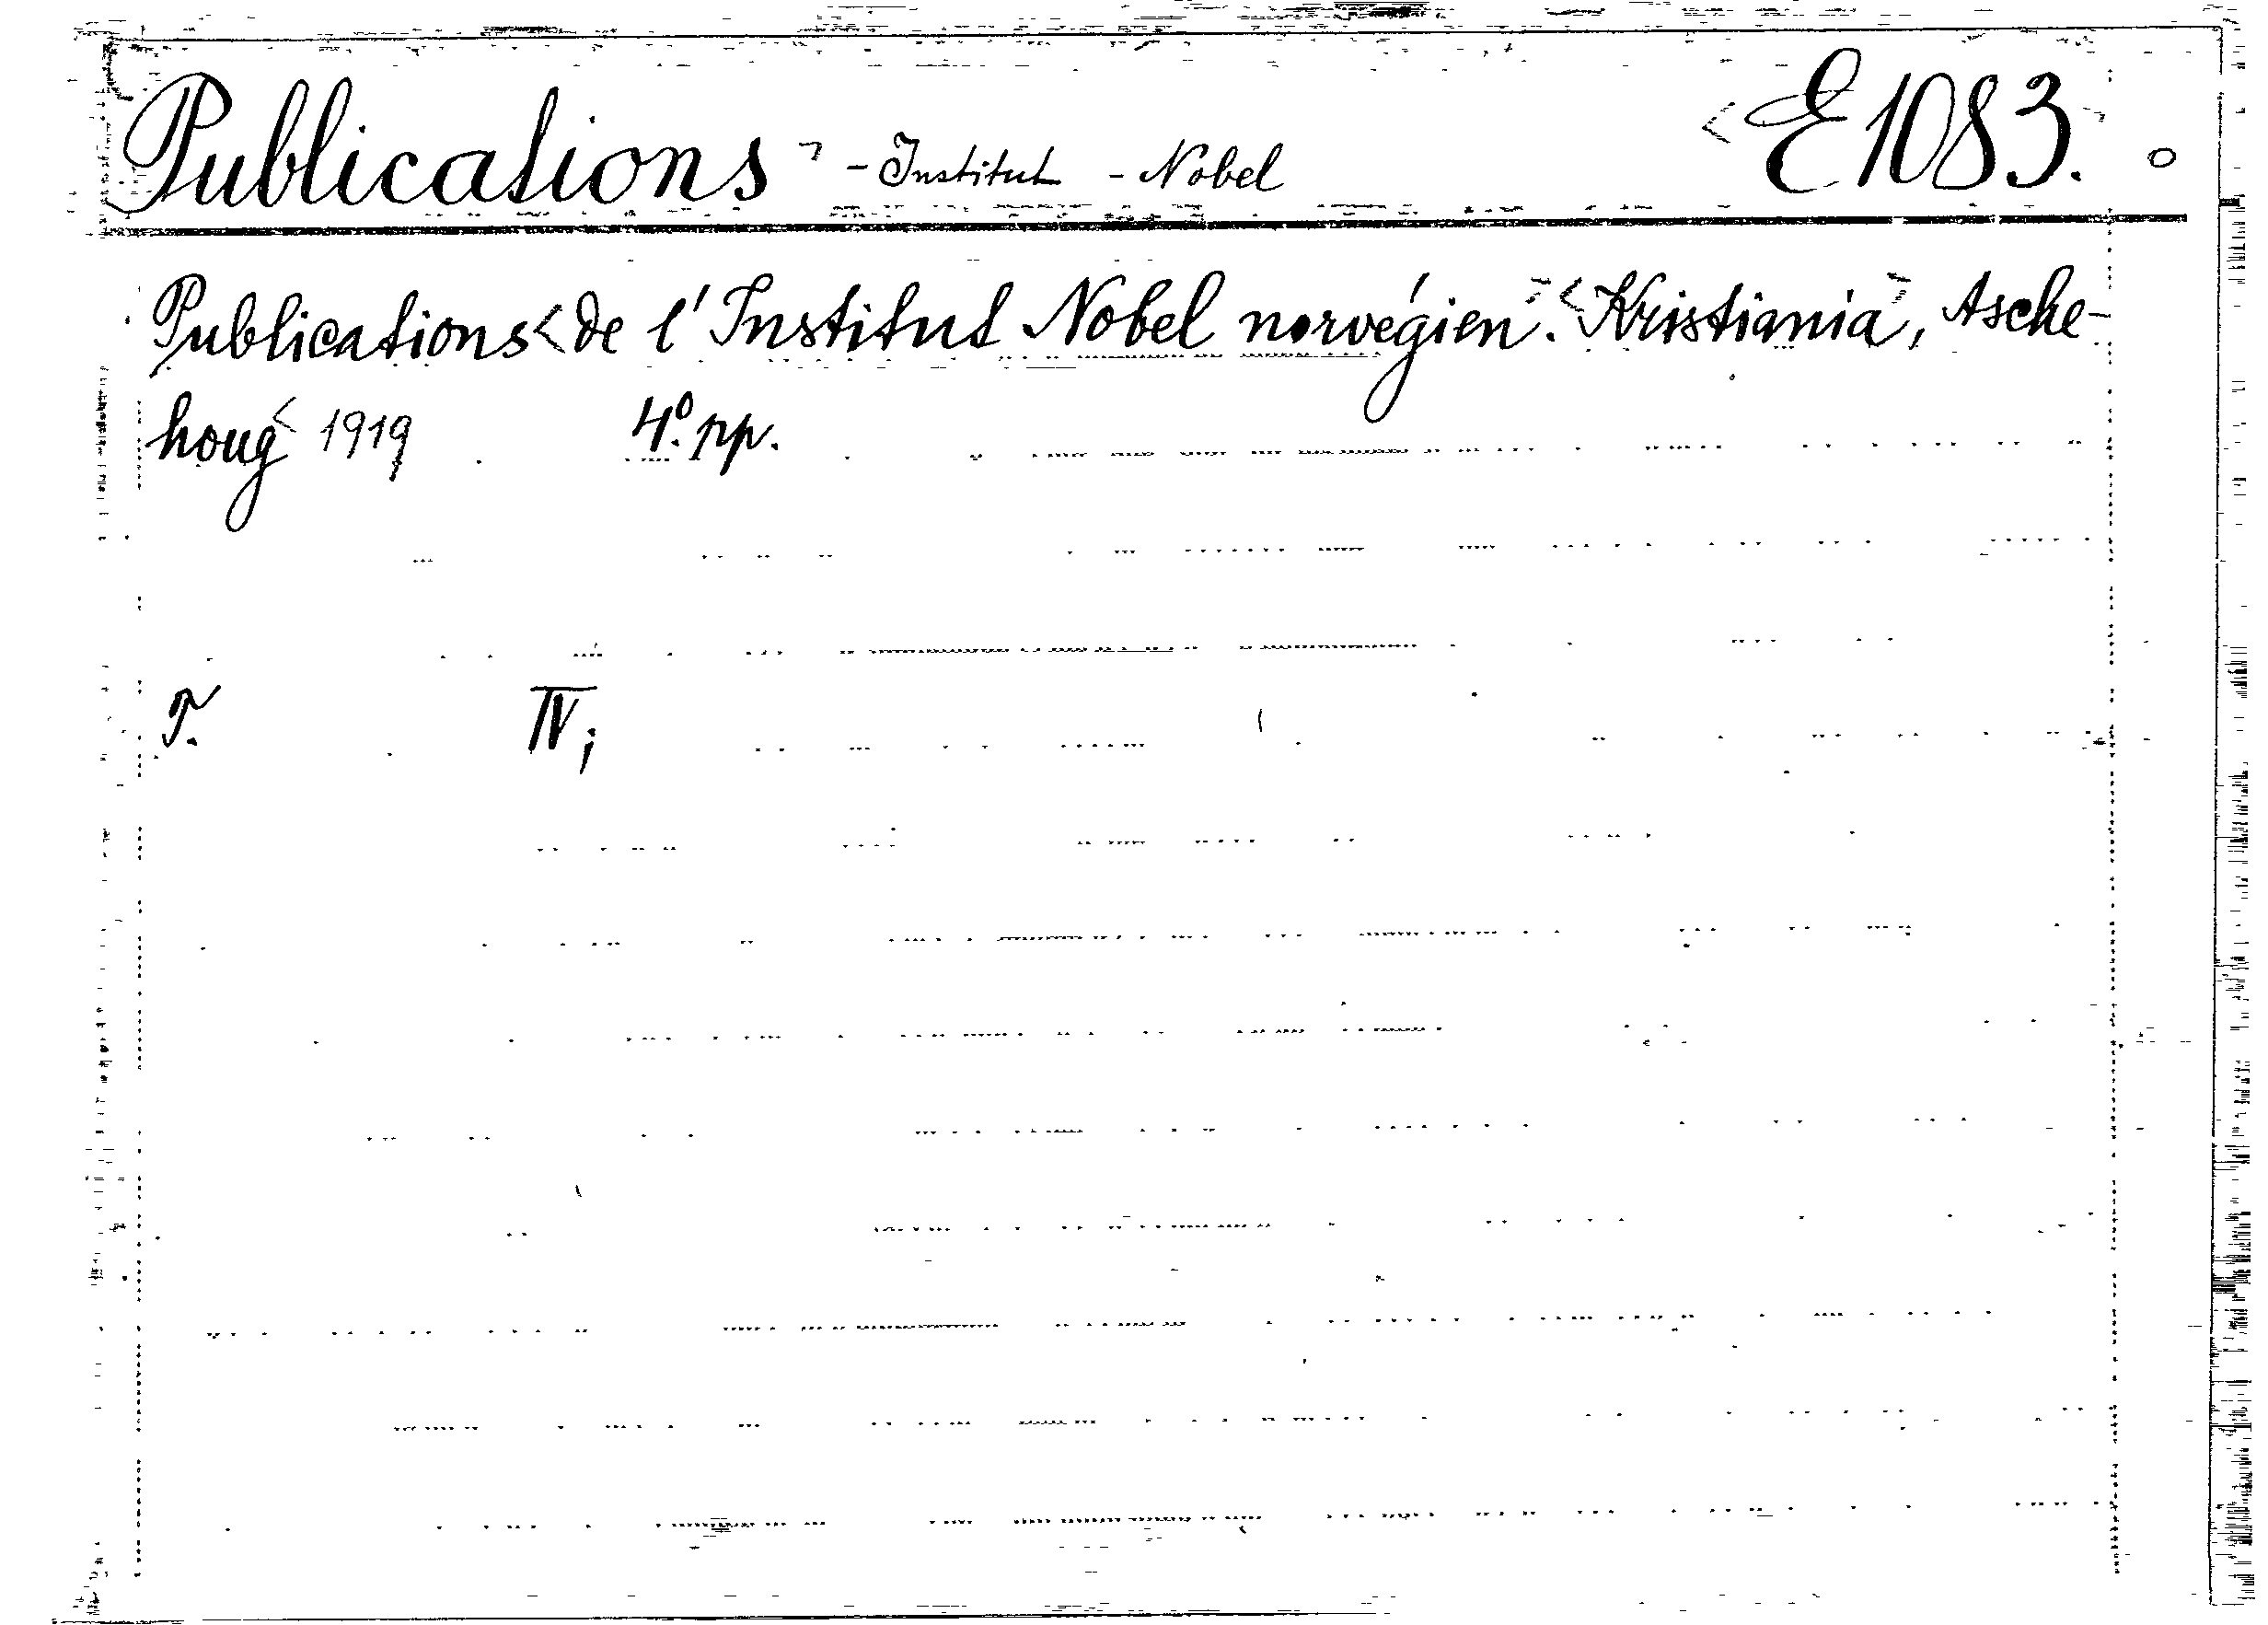 Publications - Institut - Nobel E1083.
Publications de l'Institut Nobel norvégien. Kristiania, Asche-
houg 1919 4º. pp.
T. IV;